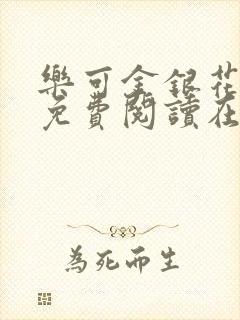 樂可金銀花
免費閱讀在
為死而生